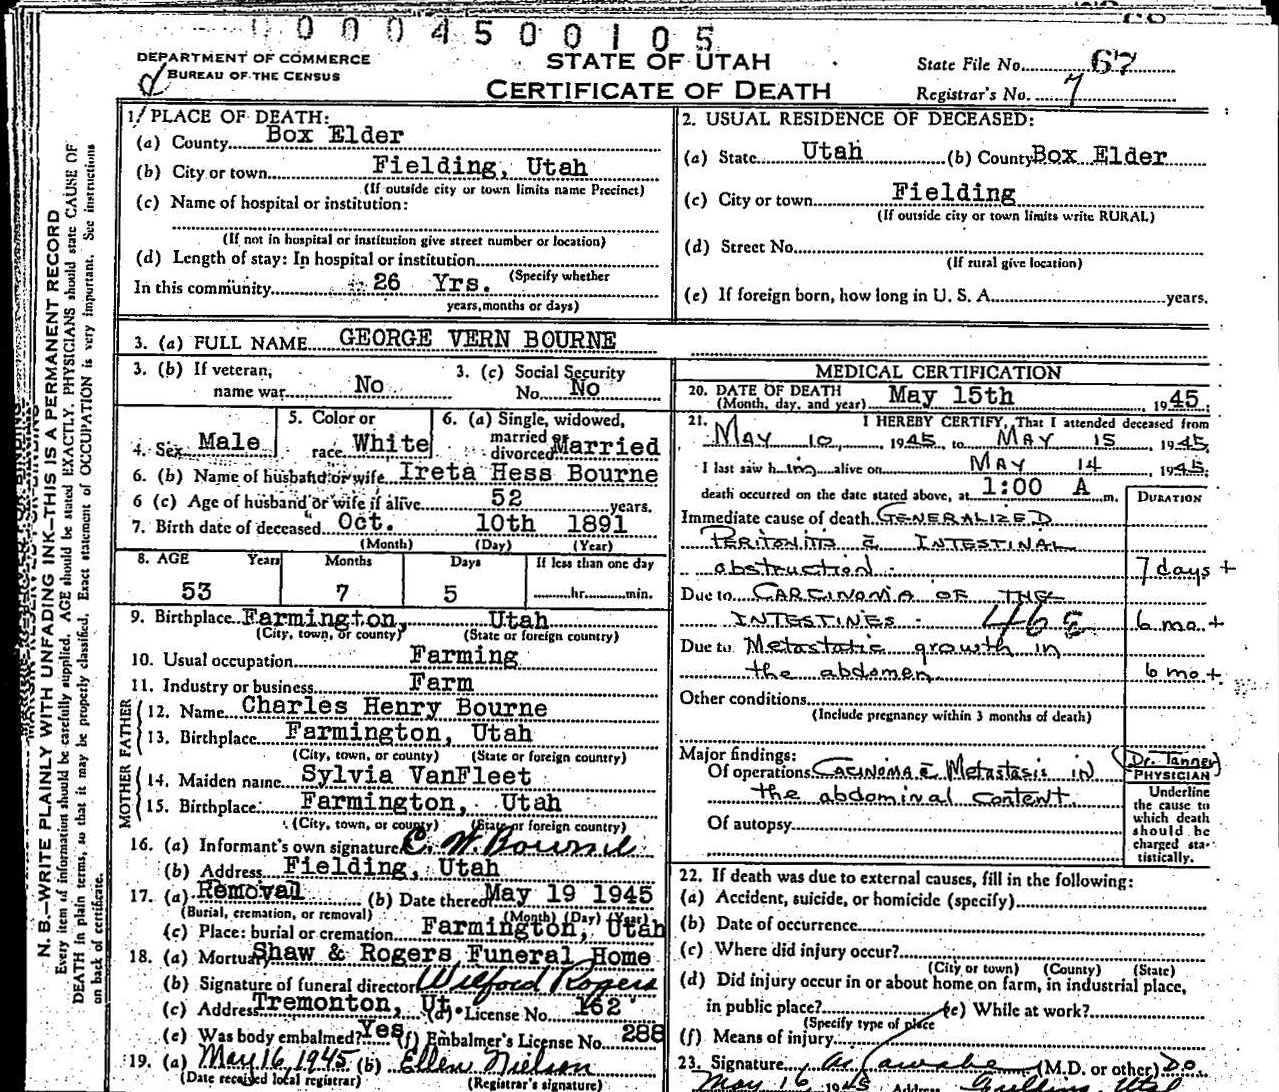 0004500105
DEPARTMENT OF COMMERCE
BUREAU OF THE CENSUS
STATE OF UTAH
CERTIFICATE OF DEATH
State File No. 67
Registrar's No. 7
N. B.—WRITE PLAINLY WITH UNFADING INK—THIS IS A PERMANENT RECORD
Every item of information should be carefully supplied. AGE should be stated EXACTLY. PHYSICIANS should state CAUSE OF
DEATH in plain terms, so that it may be properly classified. Exact statement of OCCUPATION is very important. See instructions
on back of certificate.
1. PLACE OF DEATH:
(a) County Box Elder
(b) City or town Fielding, Utah
(If outside city or town limits name Precinct)
(c) Name of hospital or institution:
(If not in hospital or institution give street number or location)
(d) Length of stay: In hospital or institution
(Specify whether
In this community 26 Yrs.
years, months or days)
2. USUAL RESIDENCE OF DECEASED:
(a) State Utah (b) County Box Elder
(c) City or town Fielding
(If outside city or town limits write RURAL)
(d) Street No.
(If rural give location)
(e) If foreign born, how long in U. S. A. years.
3. (a) FULL NAME GEORGE VERN BOURNE
3. (b) If veteran, name war No
3. (c) Social Security No. No
4. Sex Male
5. Color or race White
6. (a) Single, widowed, married or divorced Married
6. (b) Name of husband or wife Ireta Hess Bourne
6 (c) Age of husband or wife if alive 52 years.
7. Birth date of deceased Oct. 10th 1891
(Month) (Day) (Year)
8. AGE Years Months Days If less than one day
53 7 5 hr. min.
9. Birthplace Farmington, Utah
(City, town, or county) (State or foreign country)
10. Usual occupation Farming
11. Industry or business Farm
FATHER
12. Name Charles Henry Bourne
13. Birthplace Farmington, Utah
(City, town, or county) (State or foreign country)
MOTHER
14. Maiden name Sylvia VanFleet
15. Birthplace Farmington, Utah
(City, town, or county) (State or foreign country)
16. (a) Informant's own signature C. W. Bourne
(b) Address Fielding, Utah
17. (a) Removal (b) Date thereof May 19 1945
(Burial, cremation, or removal) (Month) (Day) (Year)
(c) Place: burial or cremation Farmington, Utah
18. (a) Mortuary Shaw & Rogers Funeral Home
(b) Signature of funeral director Wilford Rogers
(c) Address Tremonton, Ut. (d) License No. 162
(e) Was body embalmed? Yes (f) Embalmer's License No. 288
19. (a) May 16, 1945 (b) Ellen Nielson
(Date received local registrar) (Registrar's signature)
MEDICAL CERTIFICATION
20. DATE OF DEATH
(Month, day, and year) May 15th, 1945.
21. I HEREBY CERTIFY, That I attended deceased from
MAY 10, 1945, to MAY 15, 1945.
I last saw him alive on MAY 14 1945;
death occurred on the date stated above, at 1:00 A m.
DURATION
Immediate cause of death GENERALIZED
PERITONITIS c̄ INTESTINAL
obstruction. 7 days +
Due to CARCINOMA OF THE
INTESTINES. 46 E 6 mo +
Due to Metastatic growth in
the abdomen 6 mo +
Other conditions
(Include pregnancy within 3 months of death)
Major findings: (Dr. Tanner)
Of operations CACINOMA c̄ Metastasis in
the abdominal content.
Of autopsy
PHYSICIAN
Underline
the cause to
which death
should be
charged sta-
tistically.
22. If death was due to external causes, fill in the following:
(a) Accident, suicide, or homicide (specify)
(b) Date of occurrence
(c) Where did injury occur?
(City or town) (County) (State)
(d) Did injury occur in or about home, on farm, in industrial place,
in public place? (e) While at work?
(Specify type of place
(f) Means of injury
23. Signature (M.D. or other) D.O.
May 16 1945 Address